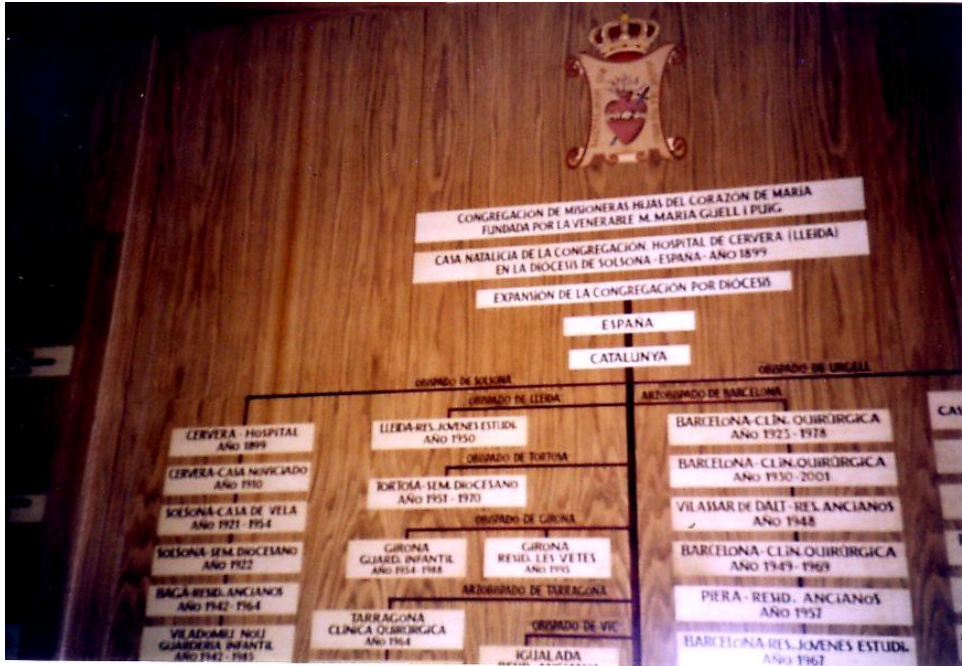 CONGREGACIÓN DE MISIONERAS HIJAS DEL CORAZÓN DE MARÍA
FUNDADA POR LA VENERABLE M. MARIA GÜELL I PUIG
CASA NATALICIA DE LA CONGREGACIÓN. HOSPITAL DE CERVERA (LLEIDA)
EN LA DIÓCESIS DE SOLSONA - ESPAÑA - AÑO 1899
EXPANSIÓN DE LA CONGREGACIÓN POR DIÓCESIS
ESPAÑA
CATALUNYA
OBISPADO DE SOLSONA
CERVERA - HOSPITAL
AÑO 1899
CERVERA-CASA NOVICIADO
AÑO 1910
SOLSONA-CASA DE VELA
AÑO 1921-1954
SOLSONA-SEM. DIOCESANO
AÑO 1922
BAGÀ-RESID. ANCIANOS
AÑO 1942-1964
VILADOMIU NOU
GUARDERÍA INFANTIL
AÑO 1942-1985
OBISPADO DE LLEIDA
LLEIDA-RES. JOVENES ESTUDI.
AÑO 1950
OBISPADO DE TORTOSA
TORTOSA-SEM. DIOCESANO
AÑO 1951 - 1970
OBISPADO DE GIRONA
GIRONA
GUARD. INFANTIL
AÑO 1954-1988
GIRONA
RESID. LES VETES
AÑO 1995
ARZOBISPADO DE TARRAGONA
TARRAGONA
CLÍNICA QUIRÚRGICA
AÑO 1964
OBISPADO DE VIC
IGUALADA
RESID. ANCIANOS
ARZOBISPADO DE BARCELONA
BARCELONA-CLÍN. QUIRÚRGICA
AÑO 1923-1978
BARCELONA-CLÍN. QUIRÚRGICA
AÑO 1930-2001
VILASSAR DE DALT-RES. ANCIANOS
AÑO 1948
BARCELONA-CLÍN. QUIRÚRGICA
AÑO 1949-1969
PIERA-RESID. ANCIANOS
AÑO 1957
BARCELONA-RES. JOVENES ESTUDI.
AÑO 1967
OBISPADO DE URGELL
CAS